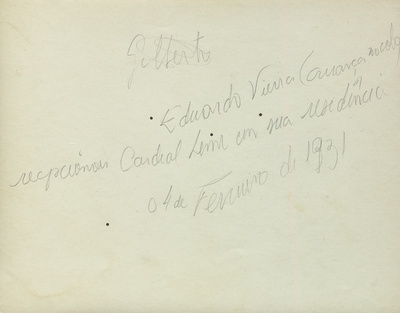 Gilberto
Eduardo Vieira
recepcionou Cardeal Leme em sua residência
04 de Fevereiro de 1931